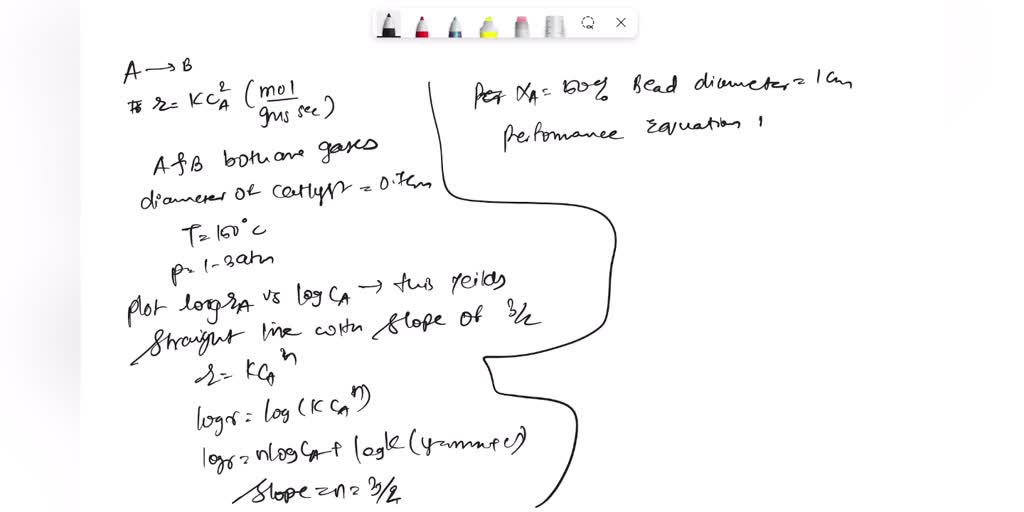 A → B
r = KC_A^2 (mol / gms sec)
A & B both are gases
diameter of catlyst = 0.7cm
T = 150°C
P = 1-3atm
plot log r_A vs log C_A → this yeilds
straight line with slope of 3/2
r = KC_A^n
log r = log (K C_A^n)
log r = n log C_A + log k (y=mx+c)
slope = n = 3/2
Per X_A = 50% Bead diameter = 1cm
performance Equation